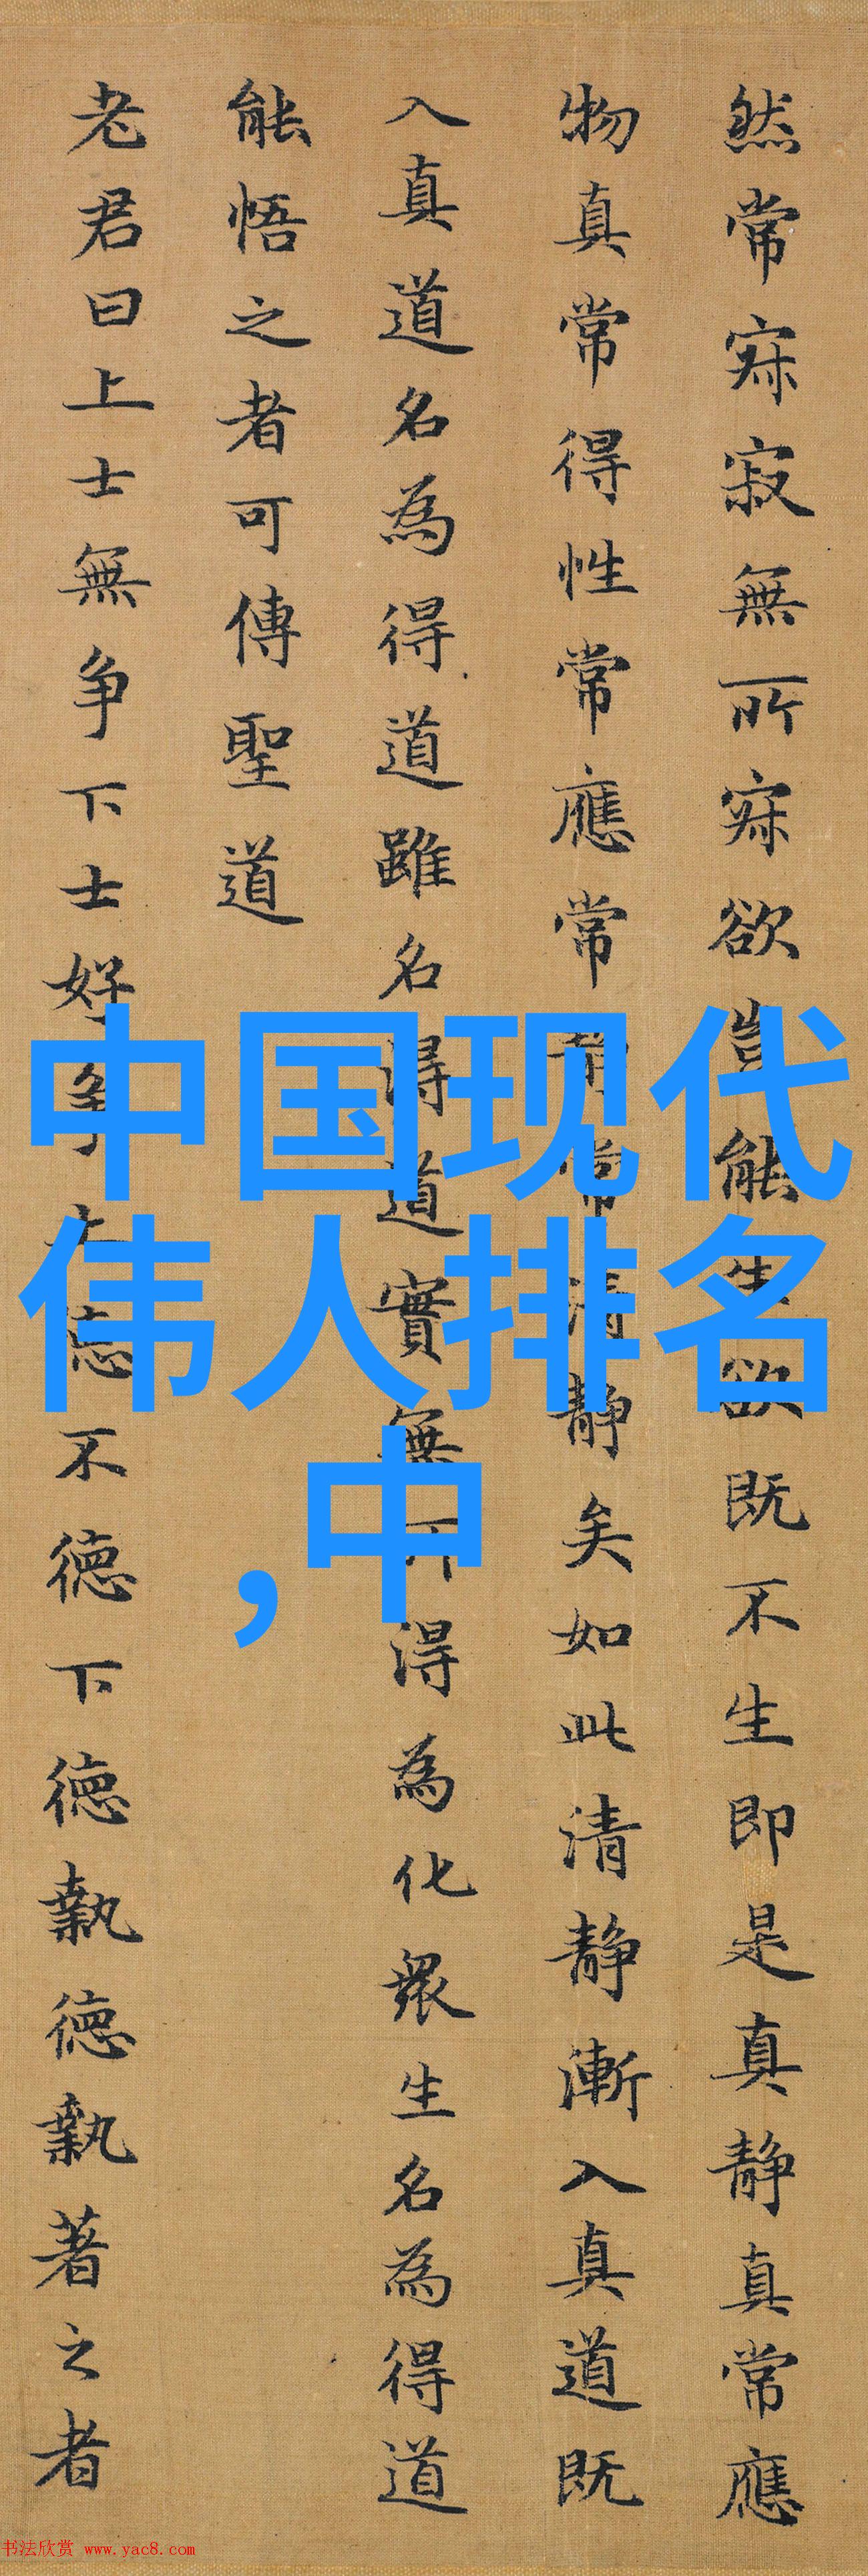 然常寂寂無所寂欲豈能生欲既不生即是真静真常應
物真常得性常應常静常清静矣如此清静漸入真道既
入真道名為得道雖名得道實無所得為化衆生名為得道
能悟之者可傳聖道
老君曰上士無争下士好争上德不德下德執德執著之者
中国现代
伟人排名
,中
书法欣赏 www.yac8.com